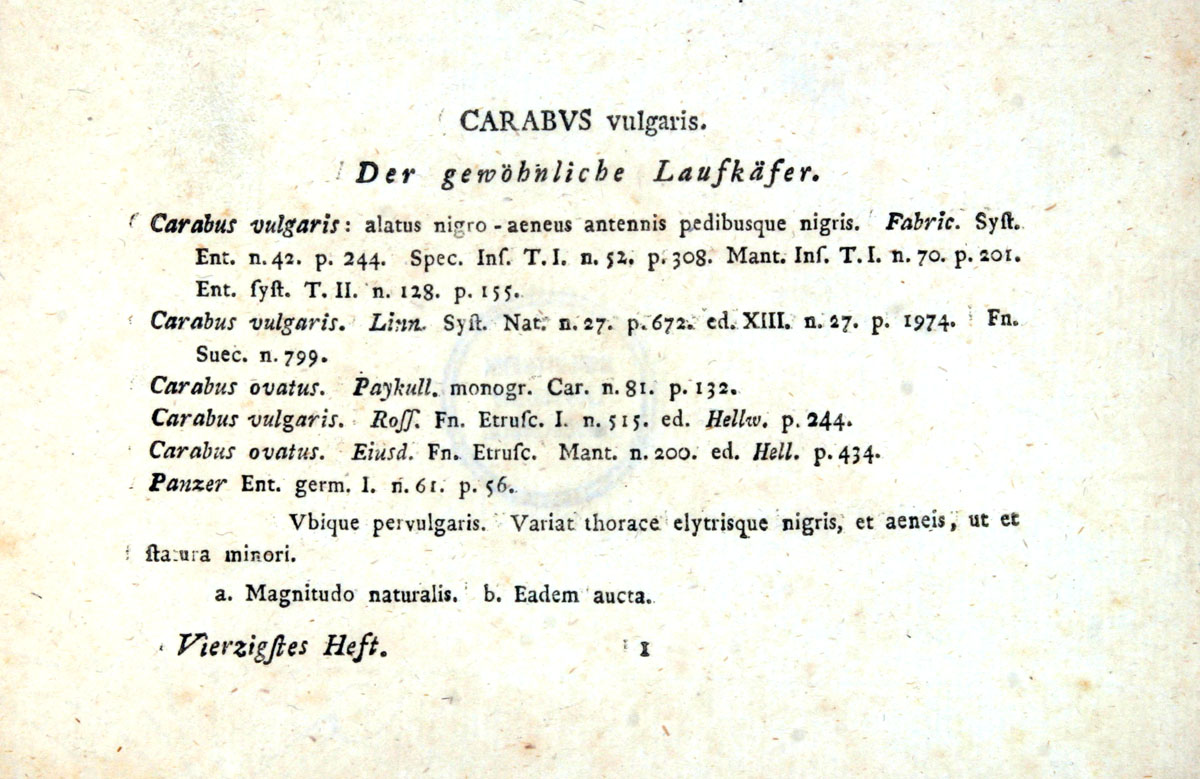 CARABVS vulgaris.
Der gewöhnliche Laufkäfer.
Carabus vulgaris: alatus nigro-aeneus antennis pedibusque nigris. Fabric. Syſt.
Ent. n. 42. p. 244. Spec. Inſ. T. I. n. 52. p. 308. Mant. Inſ. T. I. n. 70. p. 201.
Ent. ſyſt. T. II. n. 128. p. 155.
Carabus vulgaris. Linn. Syſt. Nat. n. 27. p. 672. ed. XIII. n. 27. p. 1974. Fn.
Suec. n. 799.
Carabus ovatus. Paykull. monogr. Car. n. 81. p. 132.
Carabus vulgaris. Roſſ. Fn. Etruſc. I. n. 515. ed. Hellw. p. 244.
Carabus ovatus. Eiusd. Fn. Etruſc. Mant. n. 200. ed. Hell. p. 434.
Panzer Ent. germ. I. n. 61. p. 56.
Vbique pervulgaris. Variat thorace elytrisque nigris, et aeneis, ut et
ſtatura minori.
a. Magnitudo naturalis. b. Eadem aucta.
Vierzigſtes Heft. 1